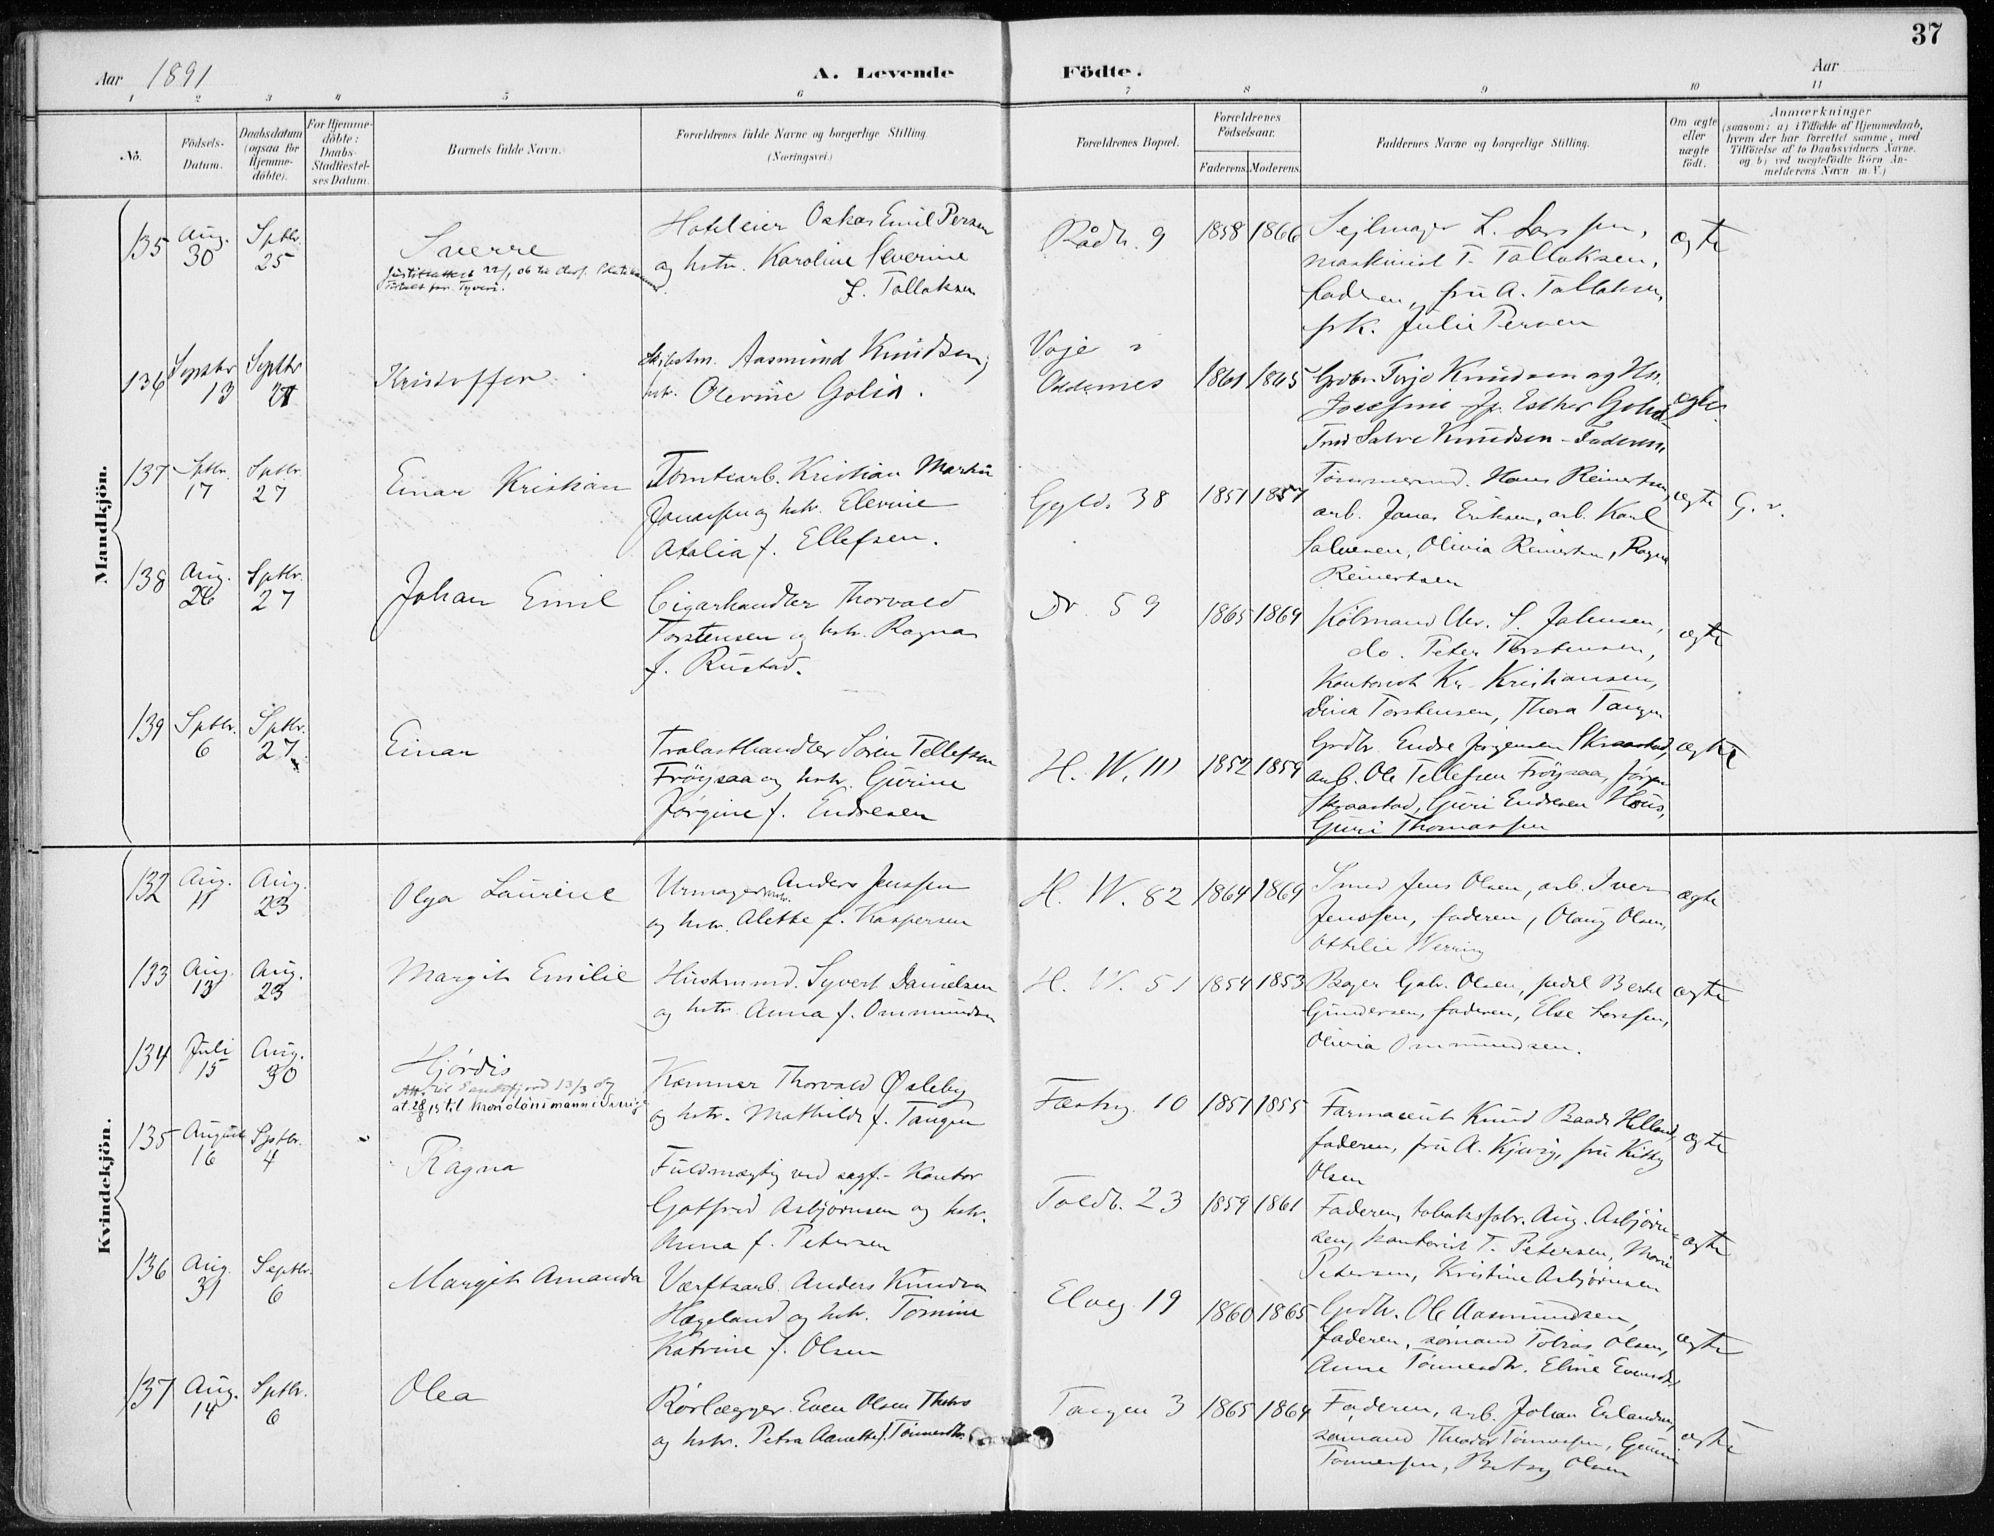 37
Aar 1891 A. Levende Födte. Aar
1 2 3 4 5 6 7 8 9 10 11
Nö.
Födsels-
Datum.
Daabsdatum
(ogsaa for
Hjemme-
döbte).
For Hjemme-
döbte:
Daabs-
Stadfæstel-
ses Datum.
Barnets fulde Navn.
Forældrenes fulde Navne og borgerlige Stilling
(Næringsvei.)
Forældrenes Bopæl.
Forældrenes
Födselsaar.
Faderens. Moderens.
Faddernes Navne og borgerlige Stilling.
Om ægte
eller
uægte
födt.
Anmærkninger
(saasom: a) i Tilfælde af Hjemmedaab,
hvem der har forrettet samme, med
Tilföielse af to Daabsvidners Navne,
og b) ved uægtefödte Börn An-
melderens Navn m.V.)
Mandkjön.
135 Aug. 30 Sptbr. 25 Sverre
Hoteleier Oskar Emil Persen
og hstr. Karoline Severine
f. Tallaksen
Rådh. 9 1858 1866
Sejlmager L. Larssen,
maskinist T. Tallaksen,
faderen, fru A. Tallaksen,
frk. Julie Persen
ægte
136 Septbr 13 Septbr Kristoffer
Aasmund Knudsen,
hstr. Olevine Golid.
Voje i
Oddernes 1861 1865
Grdbr. Terje Knudsen og Hstr.
Josefine Jp. Esther Golid
Salve Knudsen - Faderen
ægte
137 Sptbr. 17 Sptbr. 27 Einar Kristian
Tomtearb. Kristian Martin
Jonassen og hstr. Elevine
Atalia f. Ellefsen.
Gyld. 38 1851 1857
Tömmermd. Hans Reinertsen,
arb. Jonas Eriksen, arb. Karl
Salvesen, Olivia Reinertsen, Ragna
Reinertsen
ægte G. v.
138 Aug. 26 Sptbr. 27 Johan Emil
Cigarhandler Thorvald
Torstensen og hstr. Ragna
f. Rustad.
Dr. 59 1865 1869
Kølmand Chr. S. Johnsen,
do. Peter Torstensen,
Kontorist Kr. Kristiansen,
Dina Torstensen, Thora Tangen
ægte
139 Sptbr. 6 Sptbr. 27 Einar
Trælasthandler Sören Tellefsen
Fröysaa og hstr. Gurine
Jörgine f. Endresen
H. W. 111 1852 1859
Grdbr. Endre Jörgensen Skraastad,
arb. Ole Tellefsen Fröysaa, Jörgen
Skraastad, Guri Endresen Hous,
Guri Thomassen
ægte
Kvindekjön.
132 Aug. 11 Aug. 23 Olga Laurine
Urmager Anders Jenssen
og hstr. Alette f. Kaspersen
H. W. 82 1864 1869
Smed Jens Olsen, arb. Iver
Jenssen, faderen, Olaug Olsen,
Ottilie Werring
ægte
133 Aug. 13 Aug. 23 Margith Emilie
Syvert Danielsen
og hstr. Anna f. Ommundsen
H. W. 51 1854 1853
Bager Gabr. Olsen, Bertel
Gundersen, faderen, Else Larssen,
Olivia Ommundsen.
ægte
134 Juli 15 Aug. 30 Hjördis
Att. til Sandefjord 13/3
Kæmner Thorvald Øsleby
og hstr. Mathilde f. Tangen
Festng. 10 1851 1855
Farmaceut Knud Baade Helland,
faderen, fru A. Kjevig, fru Kitty
Olsen
ægte
135 August 16 Sptbr. 4 Ragna
Fuldmægtig ved sagf.- Kontor
Gotfred Asbjörnsen og hstr.
Anna f. Petersen
Toldb. 23 1859 1861
Faderen, tobaksfabr. Aug. Asbjörn-
sen, kontorist T. Petersen, Marie
Petersen, Kristine Asbjörnsen
ægte
136 Aug. 31 Septbr. 6 Margith Amanda
Værftsarb. Anders Knudsen
Hægeland og hstr. Tomine
Katrine f. Olsen
Elveg. 19 1860 1865
Grdbr. Ole Aasmundsen,
faderen, sømand Tobias Olsen,
Anne Tönnesdtr. Eline Evensdtr
ægte
137 Aug. 14 Sptbr. 6 Olea
Rörlægger Even Olsen
og hstr. Petra Aanette f. Tönnesdtr.
Tangen 3 1865 1864
Faderen, arb. Johan Erlandsen,
sømand Theodor Tönnessen,
Tönnessen, Betsy Olsen
ægte